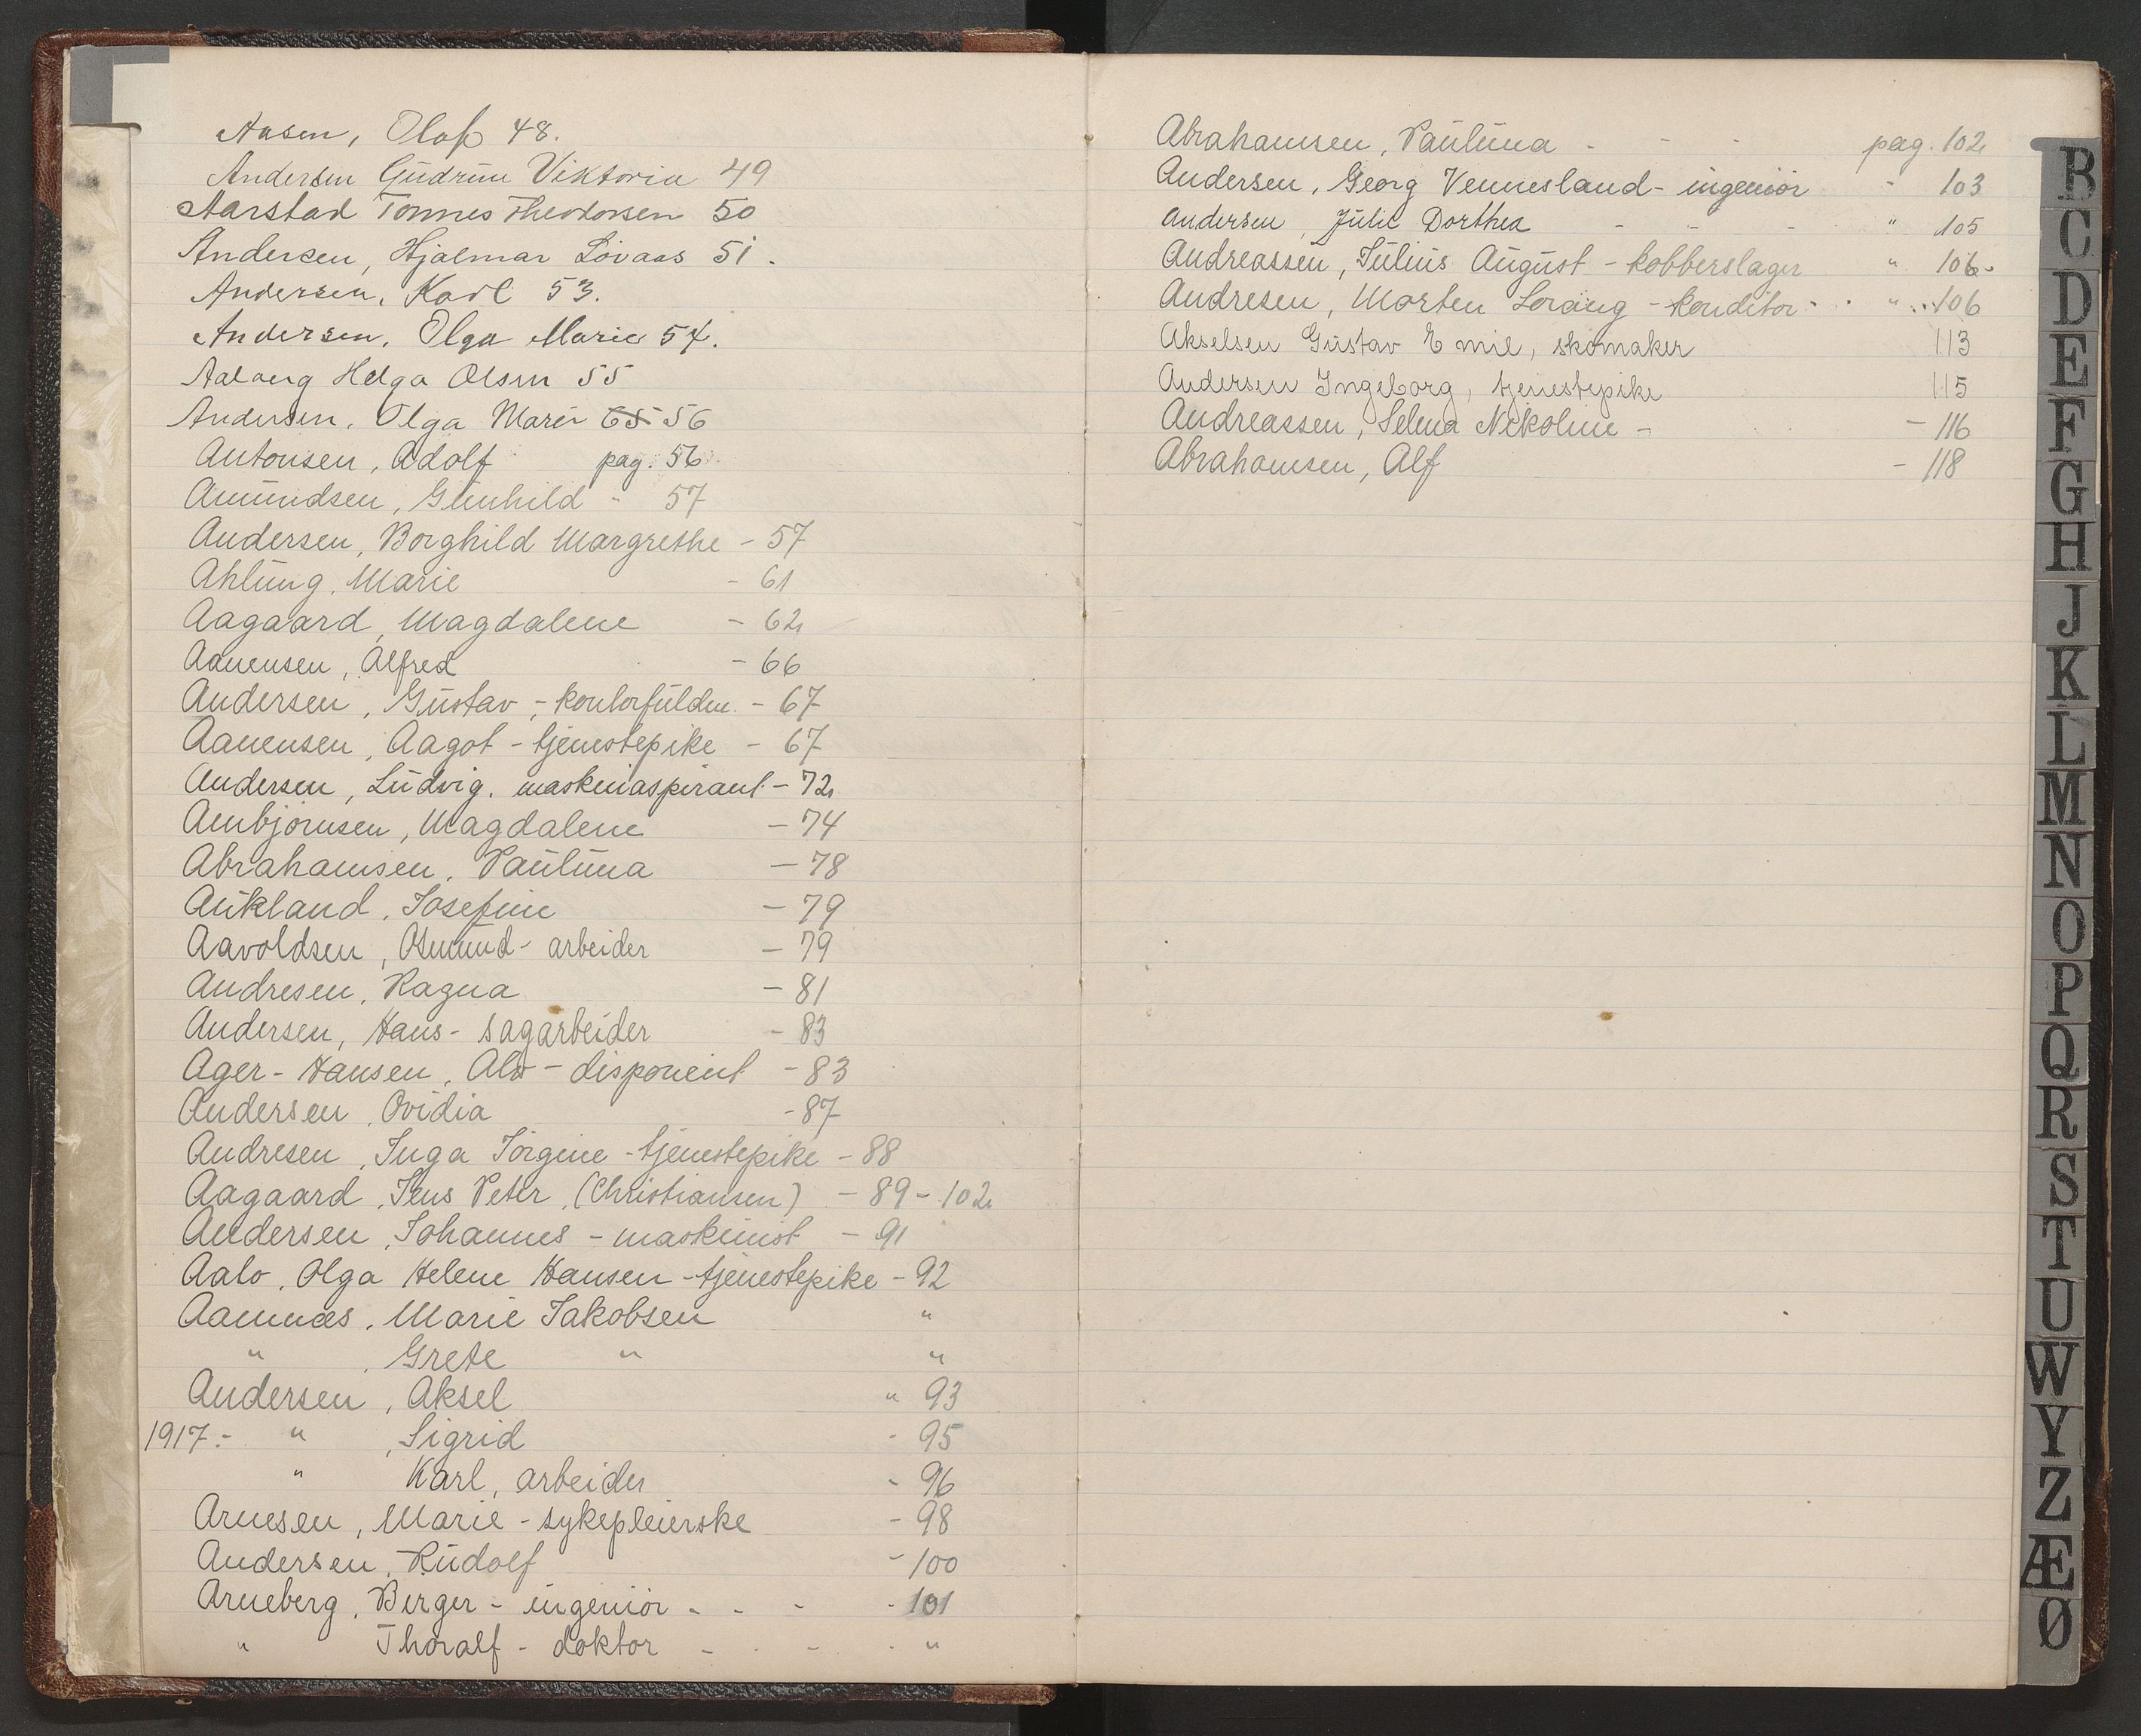 Aasen, Olaf 48.
Andersen Gudrun Viktoria 49
Aarstad Tønnes Theodorsen 50
Andersen, Hjalmar Lövaas 51.
Andersen, Karl 53.
Andersen, Olga Marie 54.
Aaberg Helga Olsen 55
Andersen, Olga Marie 65 56
Antonsen, Adolf pag. 56
Amundsen, Gunhild - 57
Andersen, Borghild Margrethe - 57
Ahlung, Marie - 61
Aagaard, Magdalene - 62
Aanensen, Alfred - 66
Andersen, Gustav - kontorfuldm. - 67
Aanensen, Aagot - tjenestepike - 67
Andersen, Ludvig. maskinaspirant - 72
Arnbjørnsen, Magdalene - 74
Abrahamsen, Paulina - 78
Aukland, Josefine - 79
Aavoldsen, Osmund - arbeider - 79
Andresen, Ragna - 81
Andersen, Hans - sagarbeider - 83
Ager-Hansen, Alv - disponent - 83
Andersen, Ovidia - 87
Andresen, Inga Jørgine - tjenestepike - 88
Aagaard, Jens Peter, (Christiansen) - 89 - 102
Andersen, Johannes - maskinist - 91
Aalo, Olga Helene Hansen - tjenestepike - 92
Aamnæs, Marie Jakobsen "
" , Grete " "
Andersen, Aksel " 93
1917:- " , Sigrid - 95
" Karl, arbeider - 96
Arnesen, Marie - sykepleierske - 98
Andersen, Rudolf - 100
Arneberg, Berger - ingeniør - - - - 101
" Thoralf - doktor - - - - "
Abrahamsen, Paulina - - - pag. 102
Andersen, Georg Vennesland - ingeniör - 103
Andersen, Julie Dorthea - - - " 105
Andreassen, Julius August - kobberslager " 106-
Andresen, Morten Lorang - konditor - " 106
Akselsen Gustav Emil, skomaker 113
Andersen Ingeborg, tjenestepike 115
Andreassen, Selma Nikoline - - 116
Abrahamsen, Alf - 118
B
C
D
E
F
G
H
J
K
L
M
N
O
P
Q
R
S
T
U
W
Y
Z
Æ
Ø